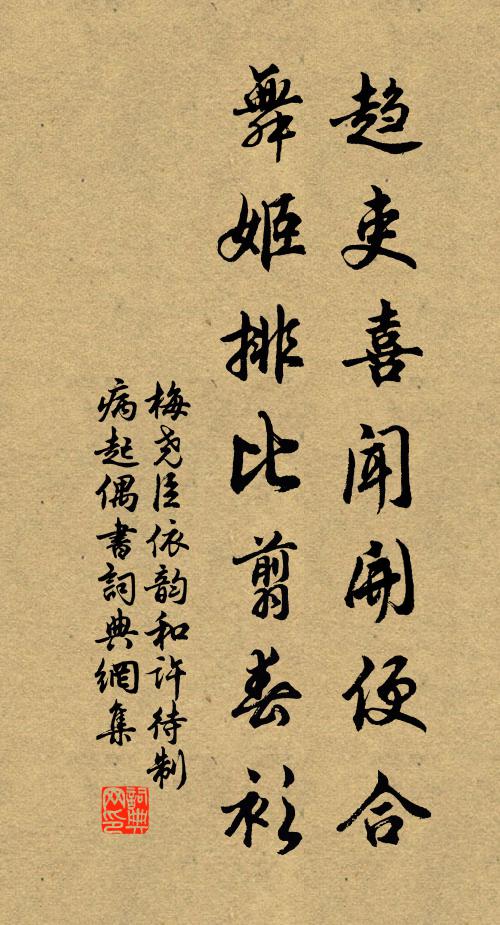 趋吏喜闻開便合
舞姬排比翦春衫
梅尧臣依韵和许待制
病起偶書詞典網集
詞典网印